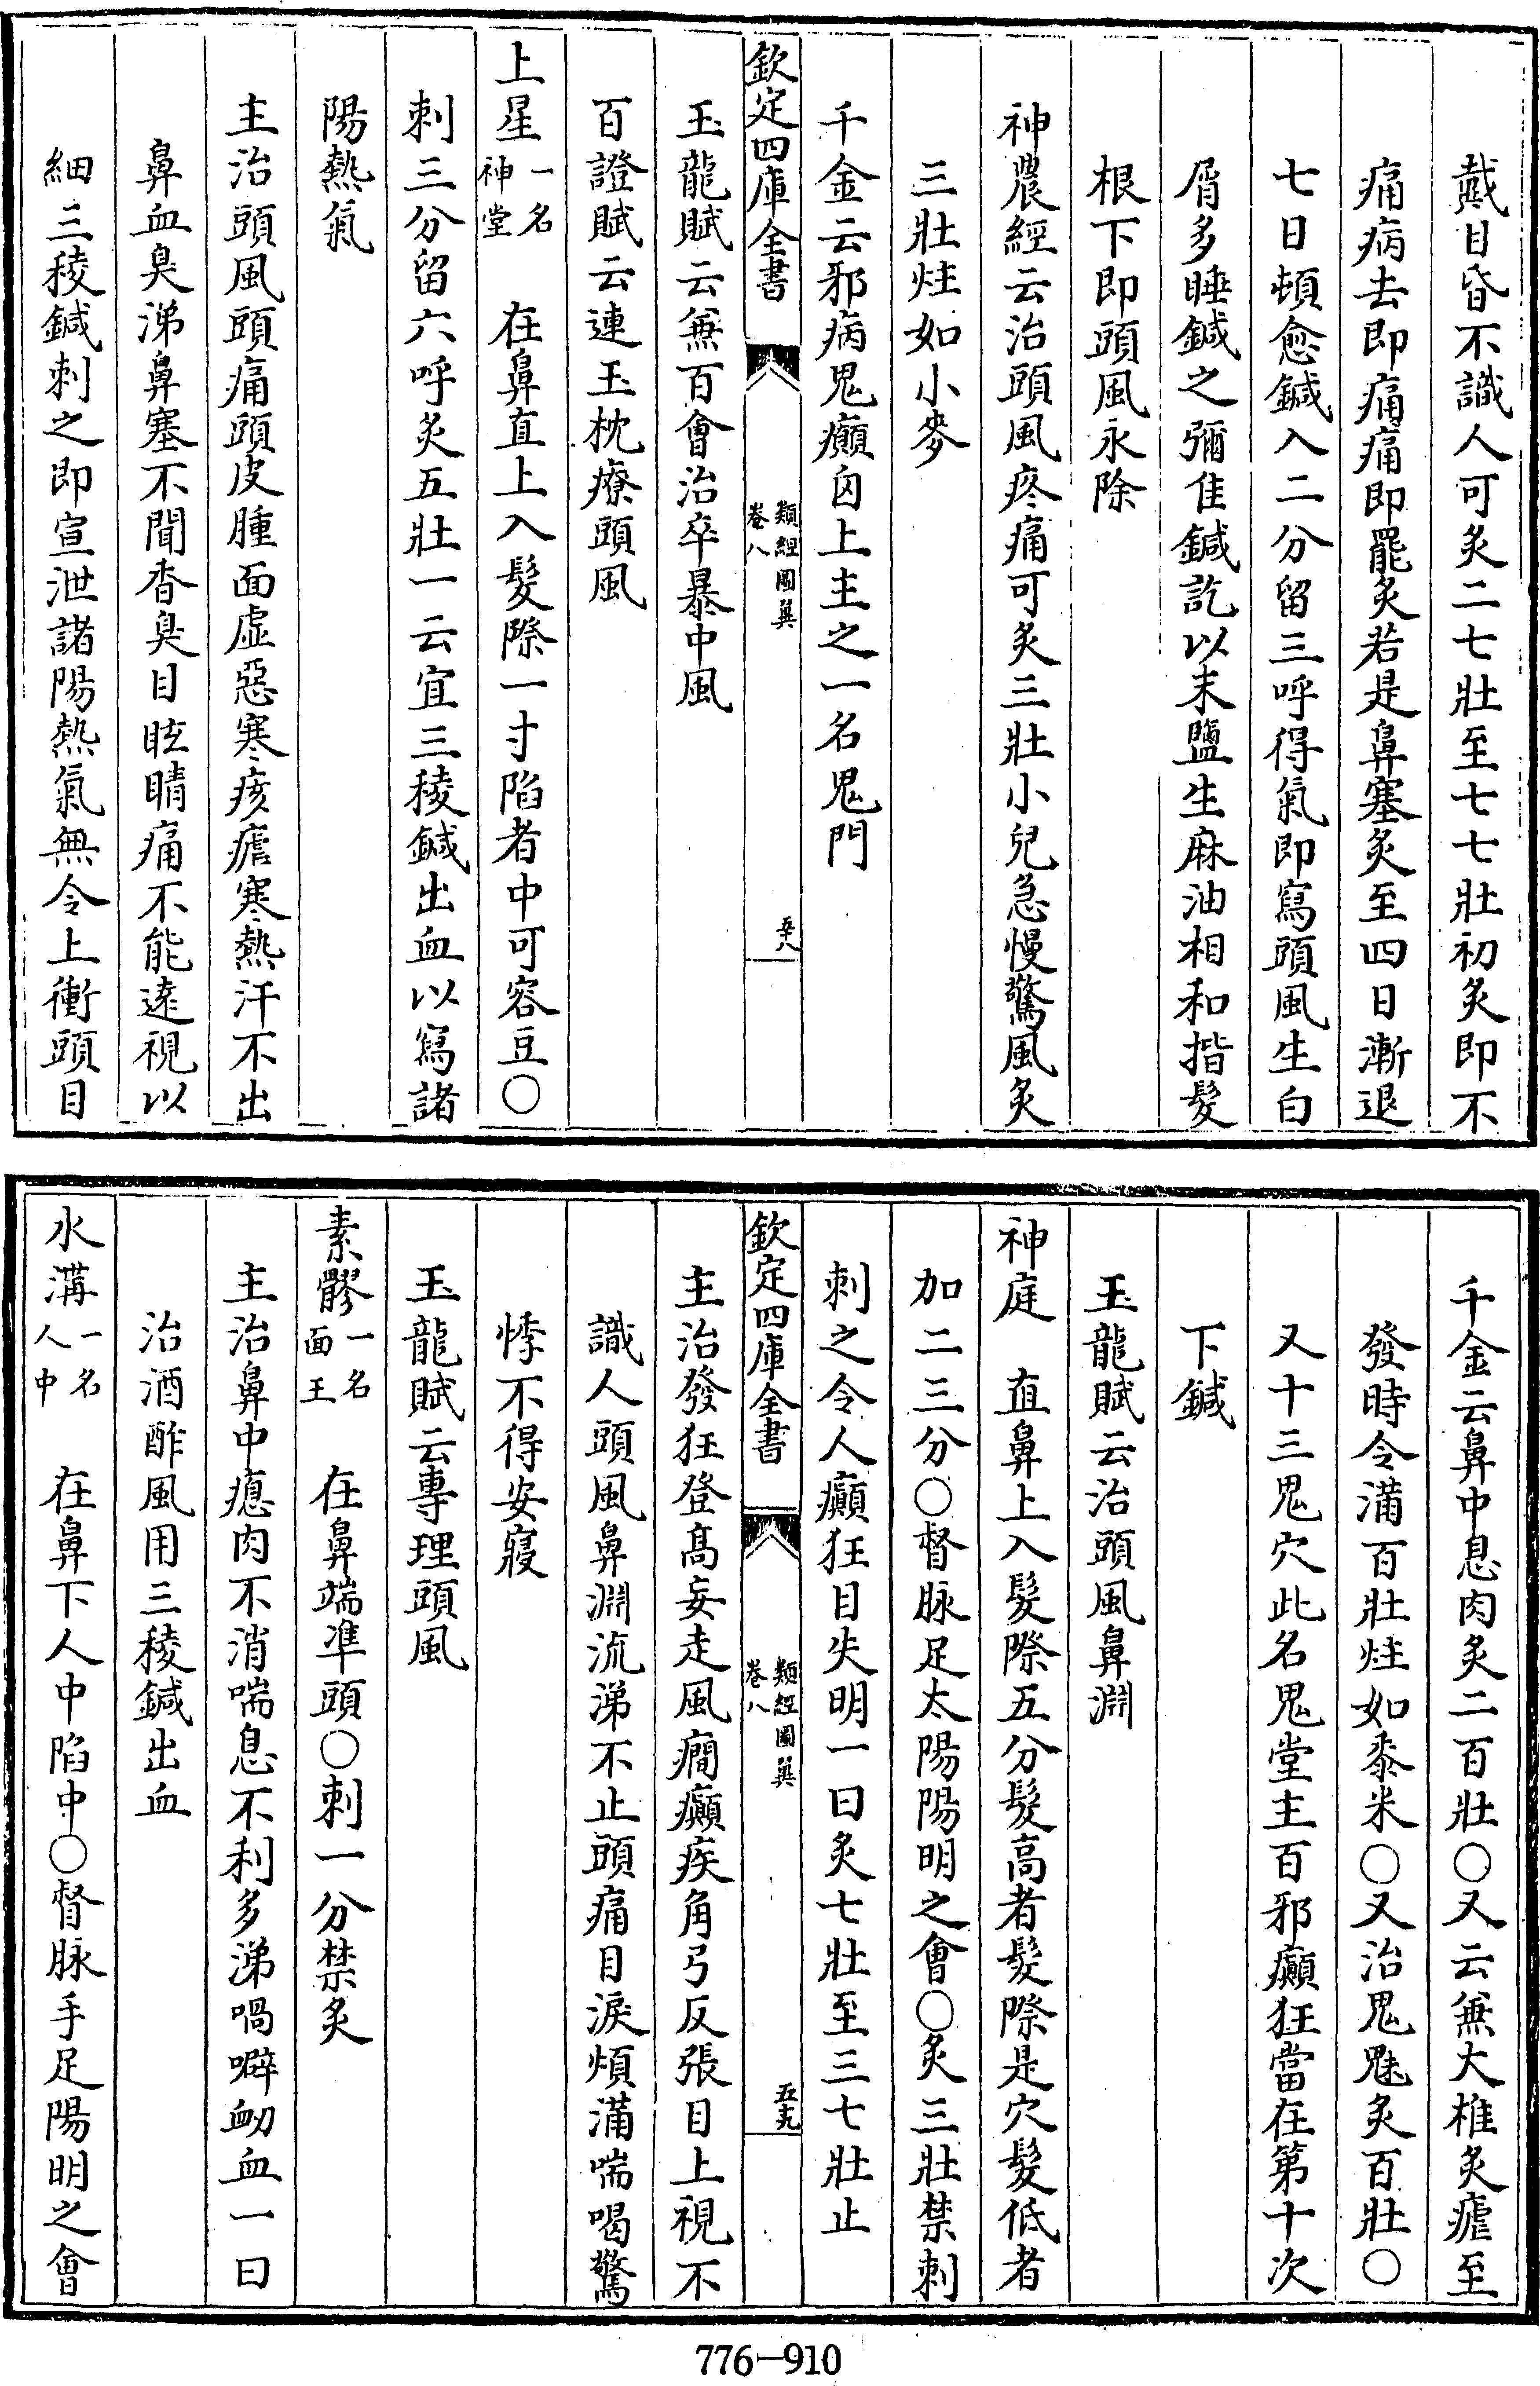 戴目昏不識人可灸二七壯至七七壯初灸即不
痛病去即痛痛即罷灸若是鼻塞灸至四日漸退
七日頓愈鍼入二分留三呼得氣即寫頭風生白
屑多睡鍼之彌佳鍼訖以末鹽生麻油相和揩髮
根下即頭風永除
神農經云治頭風疼痛可灸三壯小兒急慢驚風灸
三壯炷如小麥
千金云邪病鬼癲囟上主之一名鬼門
欽定四庫全書
類經圖翼
卷八
五十八
玉龍賦云兼百會治卒暴中風
百證賦云連玉枕療頭風
上星一名神堂 在鼻直上入髮際一寸陷者中可容豆○
刺三分留六呼灸五壯一云宜三稜鍼出血以寫諸
陽熱氣
主治頭風頭痛頭皮腫面虛惡寒痎瘧寒熱汗不出
鼻血臭涕鼻塞不聞香臭目眩睛痛不能遠視以
細三稜鍼刺之即宣泄諸陽熱氣無令上衝頭目
千金云鼻中息肉灸二百壯○又云兼大椎灸瘧至
發時令滿百壯炷如黍米○又治鬼魅灸百壯○
又十三鬼穴此名鬼堂主百邪癲狂當在第十次
下鍼
玉龍賦云治頭風鼻淵
神庭 直鼻上入髮際五分髮高者髮際是穴髮低者
加二三分○督脉足太陽陽明之會○灸三壯禁刺
刺之令人癲狂目失明一曰灸七壯至三七壯止
欽定四庫全書
類經圖翼
卷八
五十九
主治發狂登高妄走風癇癲疾角弓反張目上視不
識人頭風鼻淵流涕不止頭痛目淚煩滿喘喝驚
悸不得安寢
玉龍賦云專理頭風
素髎一名面王 在鼻端準頭○刺一分禁灸
主治鼻中瘜肉不消喘息不利多涕喎噼衄血一曰
治酒酢風用三稜鍼出血
水溝一名人中 在鼻下人中陷中○督脉手足陽明之會
776-910